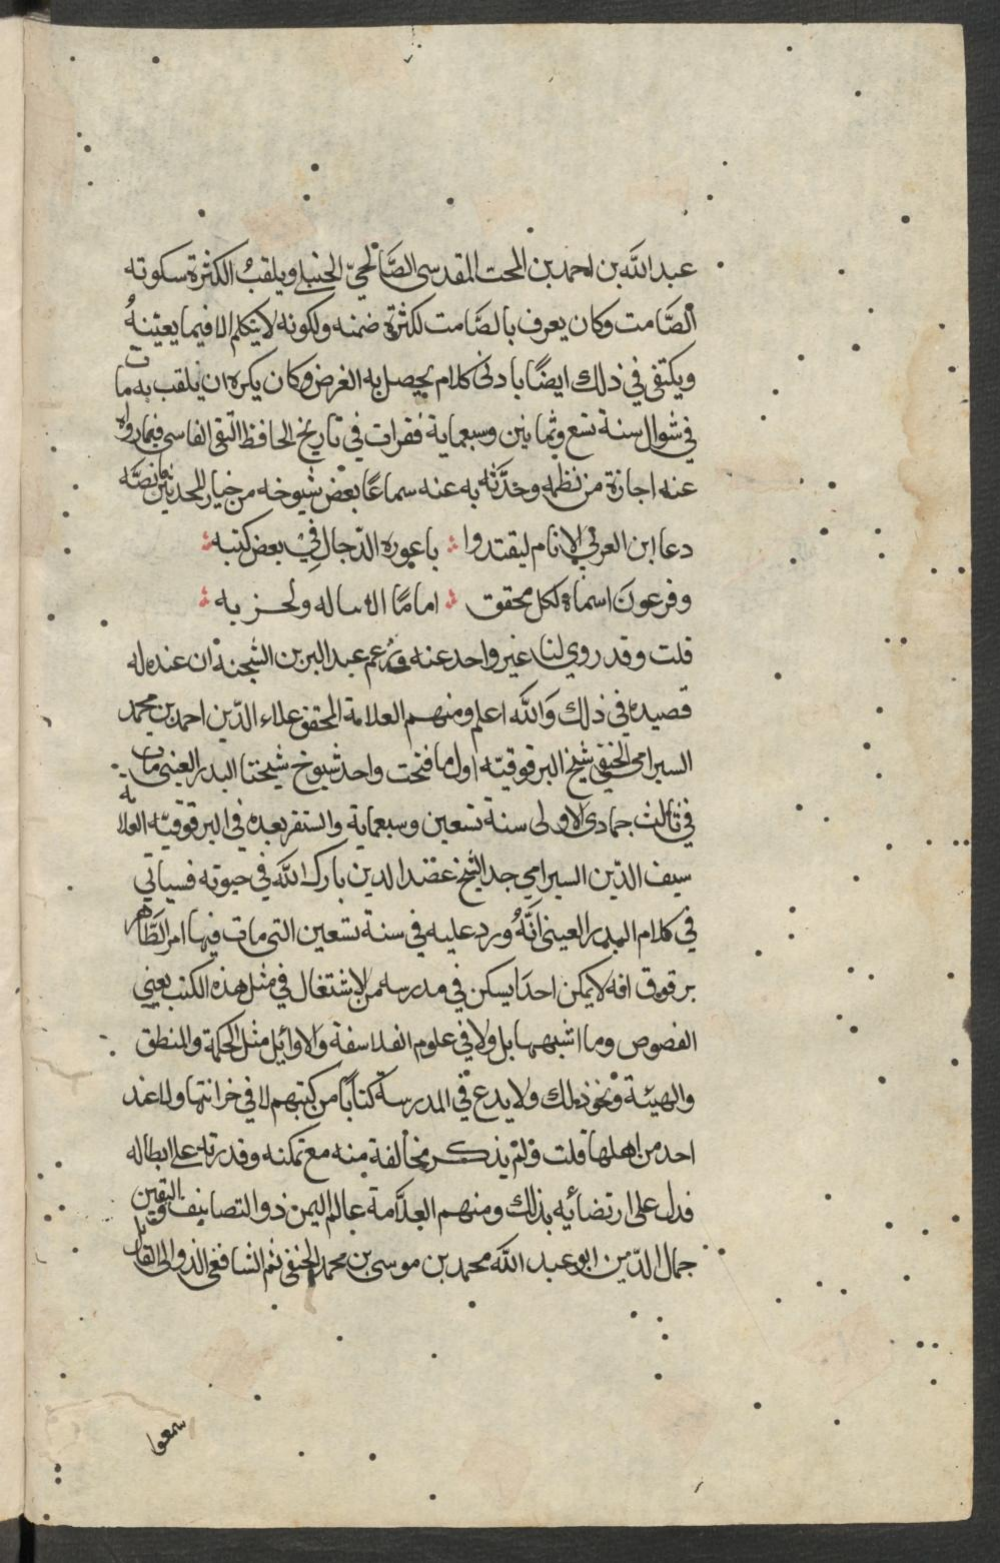 عبد الله بن احمد بن المحب المقدسي الصَّالحيّ الحنبلي ويلقب الكثرة سكوته
الصَّامت وكان يعرف بالصَّامت لكثرة ضمنه ولكونه لا يتكلم الا فيما يعتينهُ
ويكتفي في ذلك ايضًا بادنى كلام يحصل به الغرض وكان يكره ان يلقب به مات
في شوال سنة تسع وثمانين وسبعماية فقرات في تاريخ الحافظ التقي الفاسي فيما رواه
عنه اجازة من نظمه وحدَّثنه به عنه سماعًا بعض شيوخه من خيار المحدثين ما نصَّه
دعا ابن العربي الانام ليقتدوا ؞ باعوره الدّجال فيْ بعض كتبه ؞
وفرعون اسماه لكل محقق ؞ امامًا الا ساله ولحزبه ؞
قلت وقد روي لنا غير واحد عنه وزعم عبد البر بن الشحنة ان عنده له
قصيدة في ذلك والله اعلم ومنهم العلامة المحقق علاء الدّين احمد بن محمد
السيرامي الحنفي شيخ البرقوقيّه اول ما فتحت واحد شيوخ شيخنا البدر العيني مات
في ثالث جمادي الاولى سنة تسعين وسبعماية واستقر بعده في البرقوقيّه العلامة
سيف الدّين السيرامي جد الشيخ عضد الدين بارك الله في حيوته فسياتي
في كلام البدر العيني انَّهُ ورد عليه في سنة تسعين التي مات فيها امر الظَّاهر
برقوق انه لا يمكن احدًا يسكن في مدرسه من الاشتغال في مثل هذه الكتب يعني
الفصوص وما اشبهها بل ولا في علوم الفلاسفة والاوائل مثل الحكمة والمنطق
والهيئة ونحو ذلك ولا يدع في المدرسة كتابًا من كتبهم لا في خزانتها ولا عند
احد من اهلها قلت ولم يذكر مخالفة منه مع تمكنه وقدرته على ابطاله
فدل على ارتضائيه بذلك ومنهم العلَّامة عالم اليمن ذو التصانيف واليقين
جمال الدّين ابو عبد الله محمد بن موسى بن محمد الحنفي ثم الشافعي الذوالي القايل
سمعوا